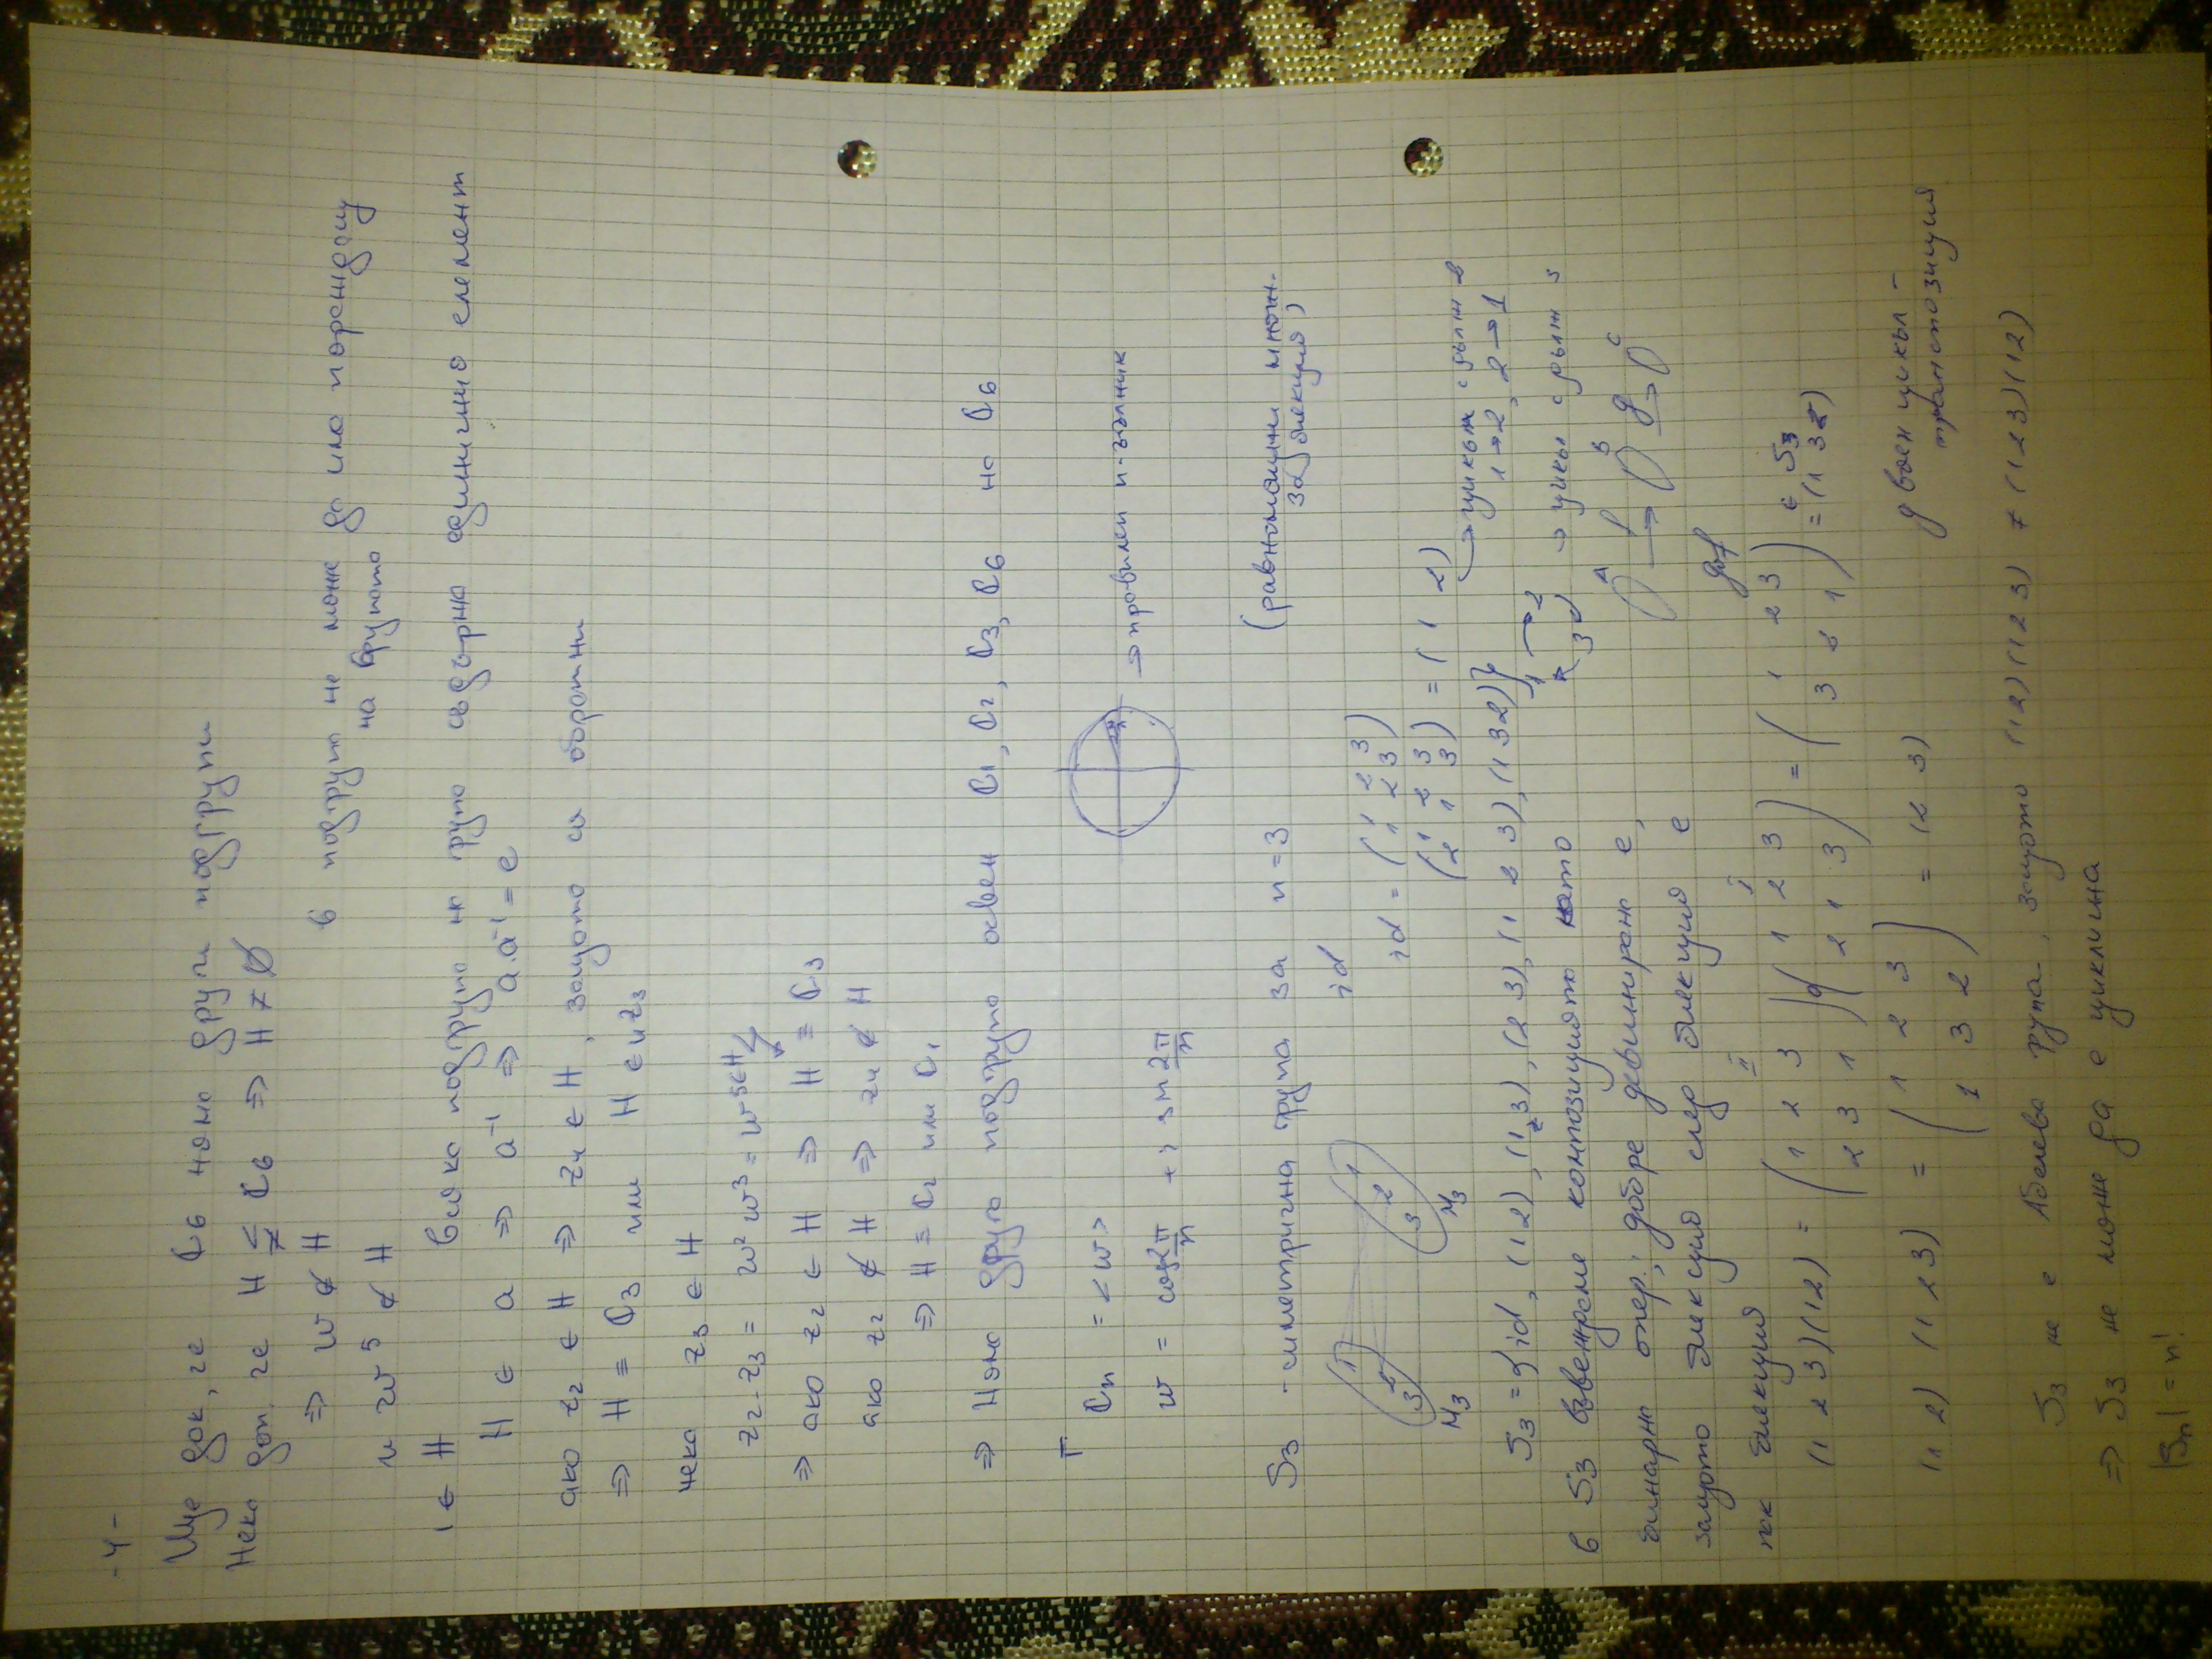 -4-
Ще док, че ℂ6 няма други подгрупи
Нека доп. че H ≨ ℂ6 ⇒ H ≠ ∅
⇒ w ∉ H
в подгрупи не може да има пораждащ
на групата
и w⁵ ∉ H
1 ∈ H
всяка подгрупа на група съдържа единичния елемент
H ∈ a ⇒ a⁻¹ ⇒ a.a⁻¹ = e
ако z2 ∈ H ⇒ z4 ∈ H, защото са обратни
⇒ H ≡ ℂ3 или H ∈ и z3
нека z3 ∈ H
z2.z3 = w² w³ = w⁵ ∈ H
⇒ ако z2 ∈ H ⇒ H ≡ ℂ3
ако z2 ∉ H ⇒ z4 ∉ H
⇒ H ≡ ℂ2 или ℂ1
⇒ Няма друга подгрупа освен ℂ1, ℂ2, ℂ3, ℂ6 на ℂ6
ℂn = <w>
→ правилен n-ъгълник
w = cos 2π/n + i sin 2π/n
S3 - симетрична група за n = 3
(равномощни множ.
за биекция)
(1 2 3) (3 2 1)
M3 M3
id
id = (1 2 3 / 1 2 3)
(1 2 3 / 2 1 3) = (1 2)
→ цикъл с дълж 2
1→2, 2→1
S3 = {id, (12), (13), (23), (1 2 3), (132)}
1 → 2 3
→ цикъл с дълж 3
в S3 въвеждаме композицията като
бинарна опер., добре дефинирана е,
A f→ B g→ C
защото биекция след биекция е
gof
пак биекция
(1 2 3)(12) = (1 2 3 / 2 3 1) o (1 2 3 / 2 1 3) = (1 2 3 / 3 2 1) ∈ S3
= (1 3)
(1 2) (1 2 3) = (1 2 3 / 1 3 2) = (2 3)
двоен цикъл -
транспозиция
S3 не е Абелева група, защото (12)(123) ≠ (123)(12)
⇒ S3 не може да е циклична
|Sn| = n!